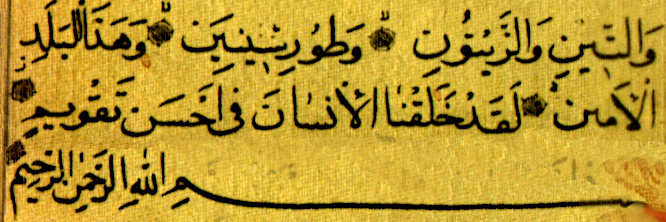 وَالتِّينِ وَالزَّيْتُونِ ۝ وَطُورِ سِينِينَ ۝ وَهَذَا الْبَلَدِ
الْأَمِينِ ۝ لَقَدْ خَلَقْنَا الْأِنْسَانَ فِي أَحْسَنِ تَقْوِيمٍ ۝
بِسْمِ اللهِ الرَّحْمٰنِ الرَّحِيمِ